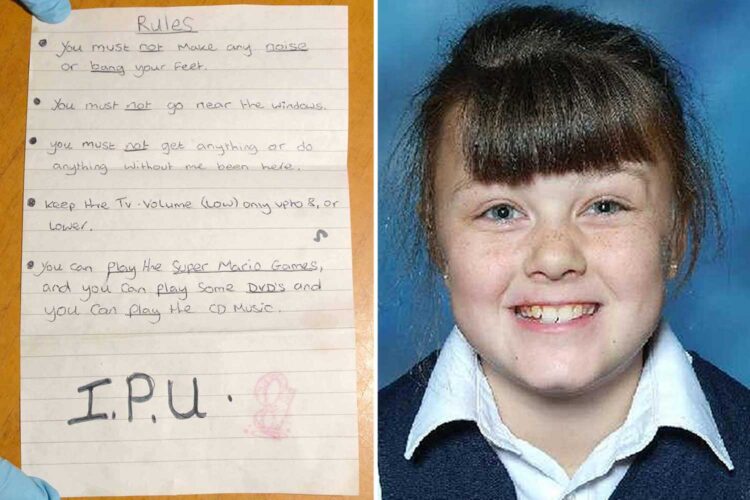 Rules
• You must not make any noise
or bang your feet.
• You must not go near the windows.
• you must not get anything or do
anything without me been here.
• keep the Tv. Volume (Low) only upto 8, or
Lower.
• You can play the Super Mario Games,
and you can play some DVD's and
you can play the CD Music.
I.P.U.